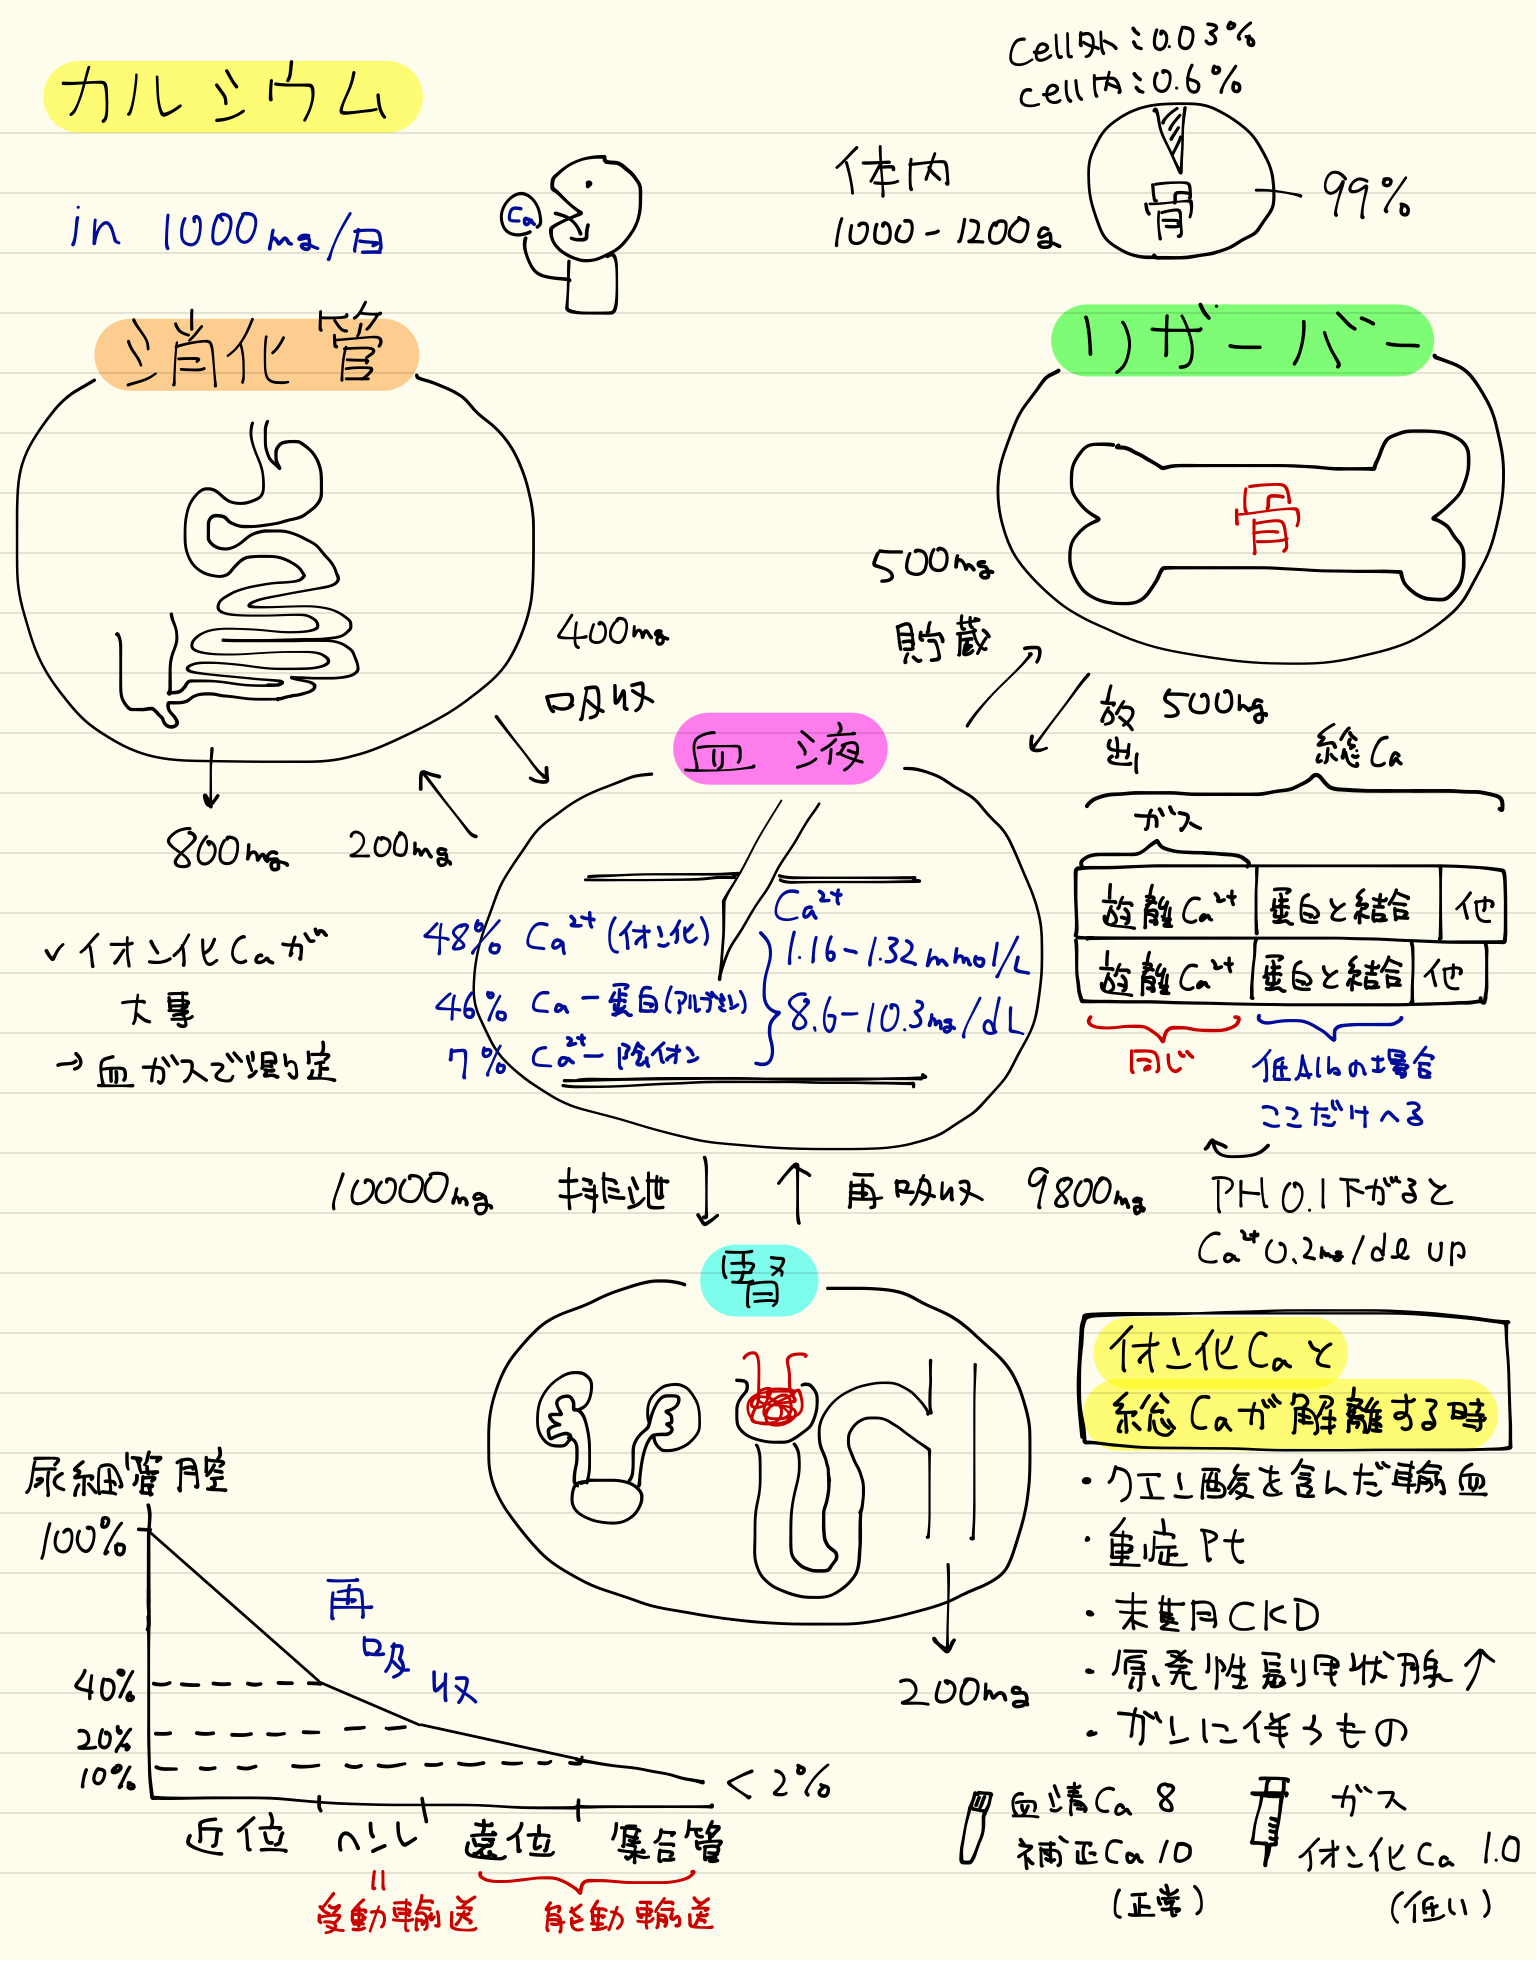 カルシウム
cell外:0.03%
cell内:0.6%
体内
1000-1200g
骨
99%
in 1000mg/日
Ca
消化管
リザーバー
骨
500mg
貯蔵
400mg
吸収
放出
500mg
血液
総Ca
ガス
800mg
200mg
放離Ca2+ 蛋白と結合 他
放離Ca2+ 蛋白と結合 他
同じ
低Albの場合
ここだけへる
✓イオン化Caが
大事
→血ガスで測定
48% Ca2+(イオン化)
46% Ca-蛋白(アルブミン)
7% Ca2+-陰イオン
Ca2+
1.16-1.32mmol/L
8.6-10.3mg/dL
10000mg 排泄
再吸収 9800mg
PH0.1下がると
Ca2+0.2mg/dl up
腎
200mg
イオン化Caと
総Caが解離する時
・クエン酸を含んだ輸血
・重症Pt
・末期CKD
・原発性副甲状腺↑
・ガンに伴うもの
尿細管腔
100%
40%
20%
10%
再吸収
<2%
近位 ヘンレ 遠位 集合管
=
受動輸送 能動輸送
血清Ca 8
補正Ca 10
(正常)
ガス
イオン化Ca 1.0
(低い)